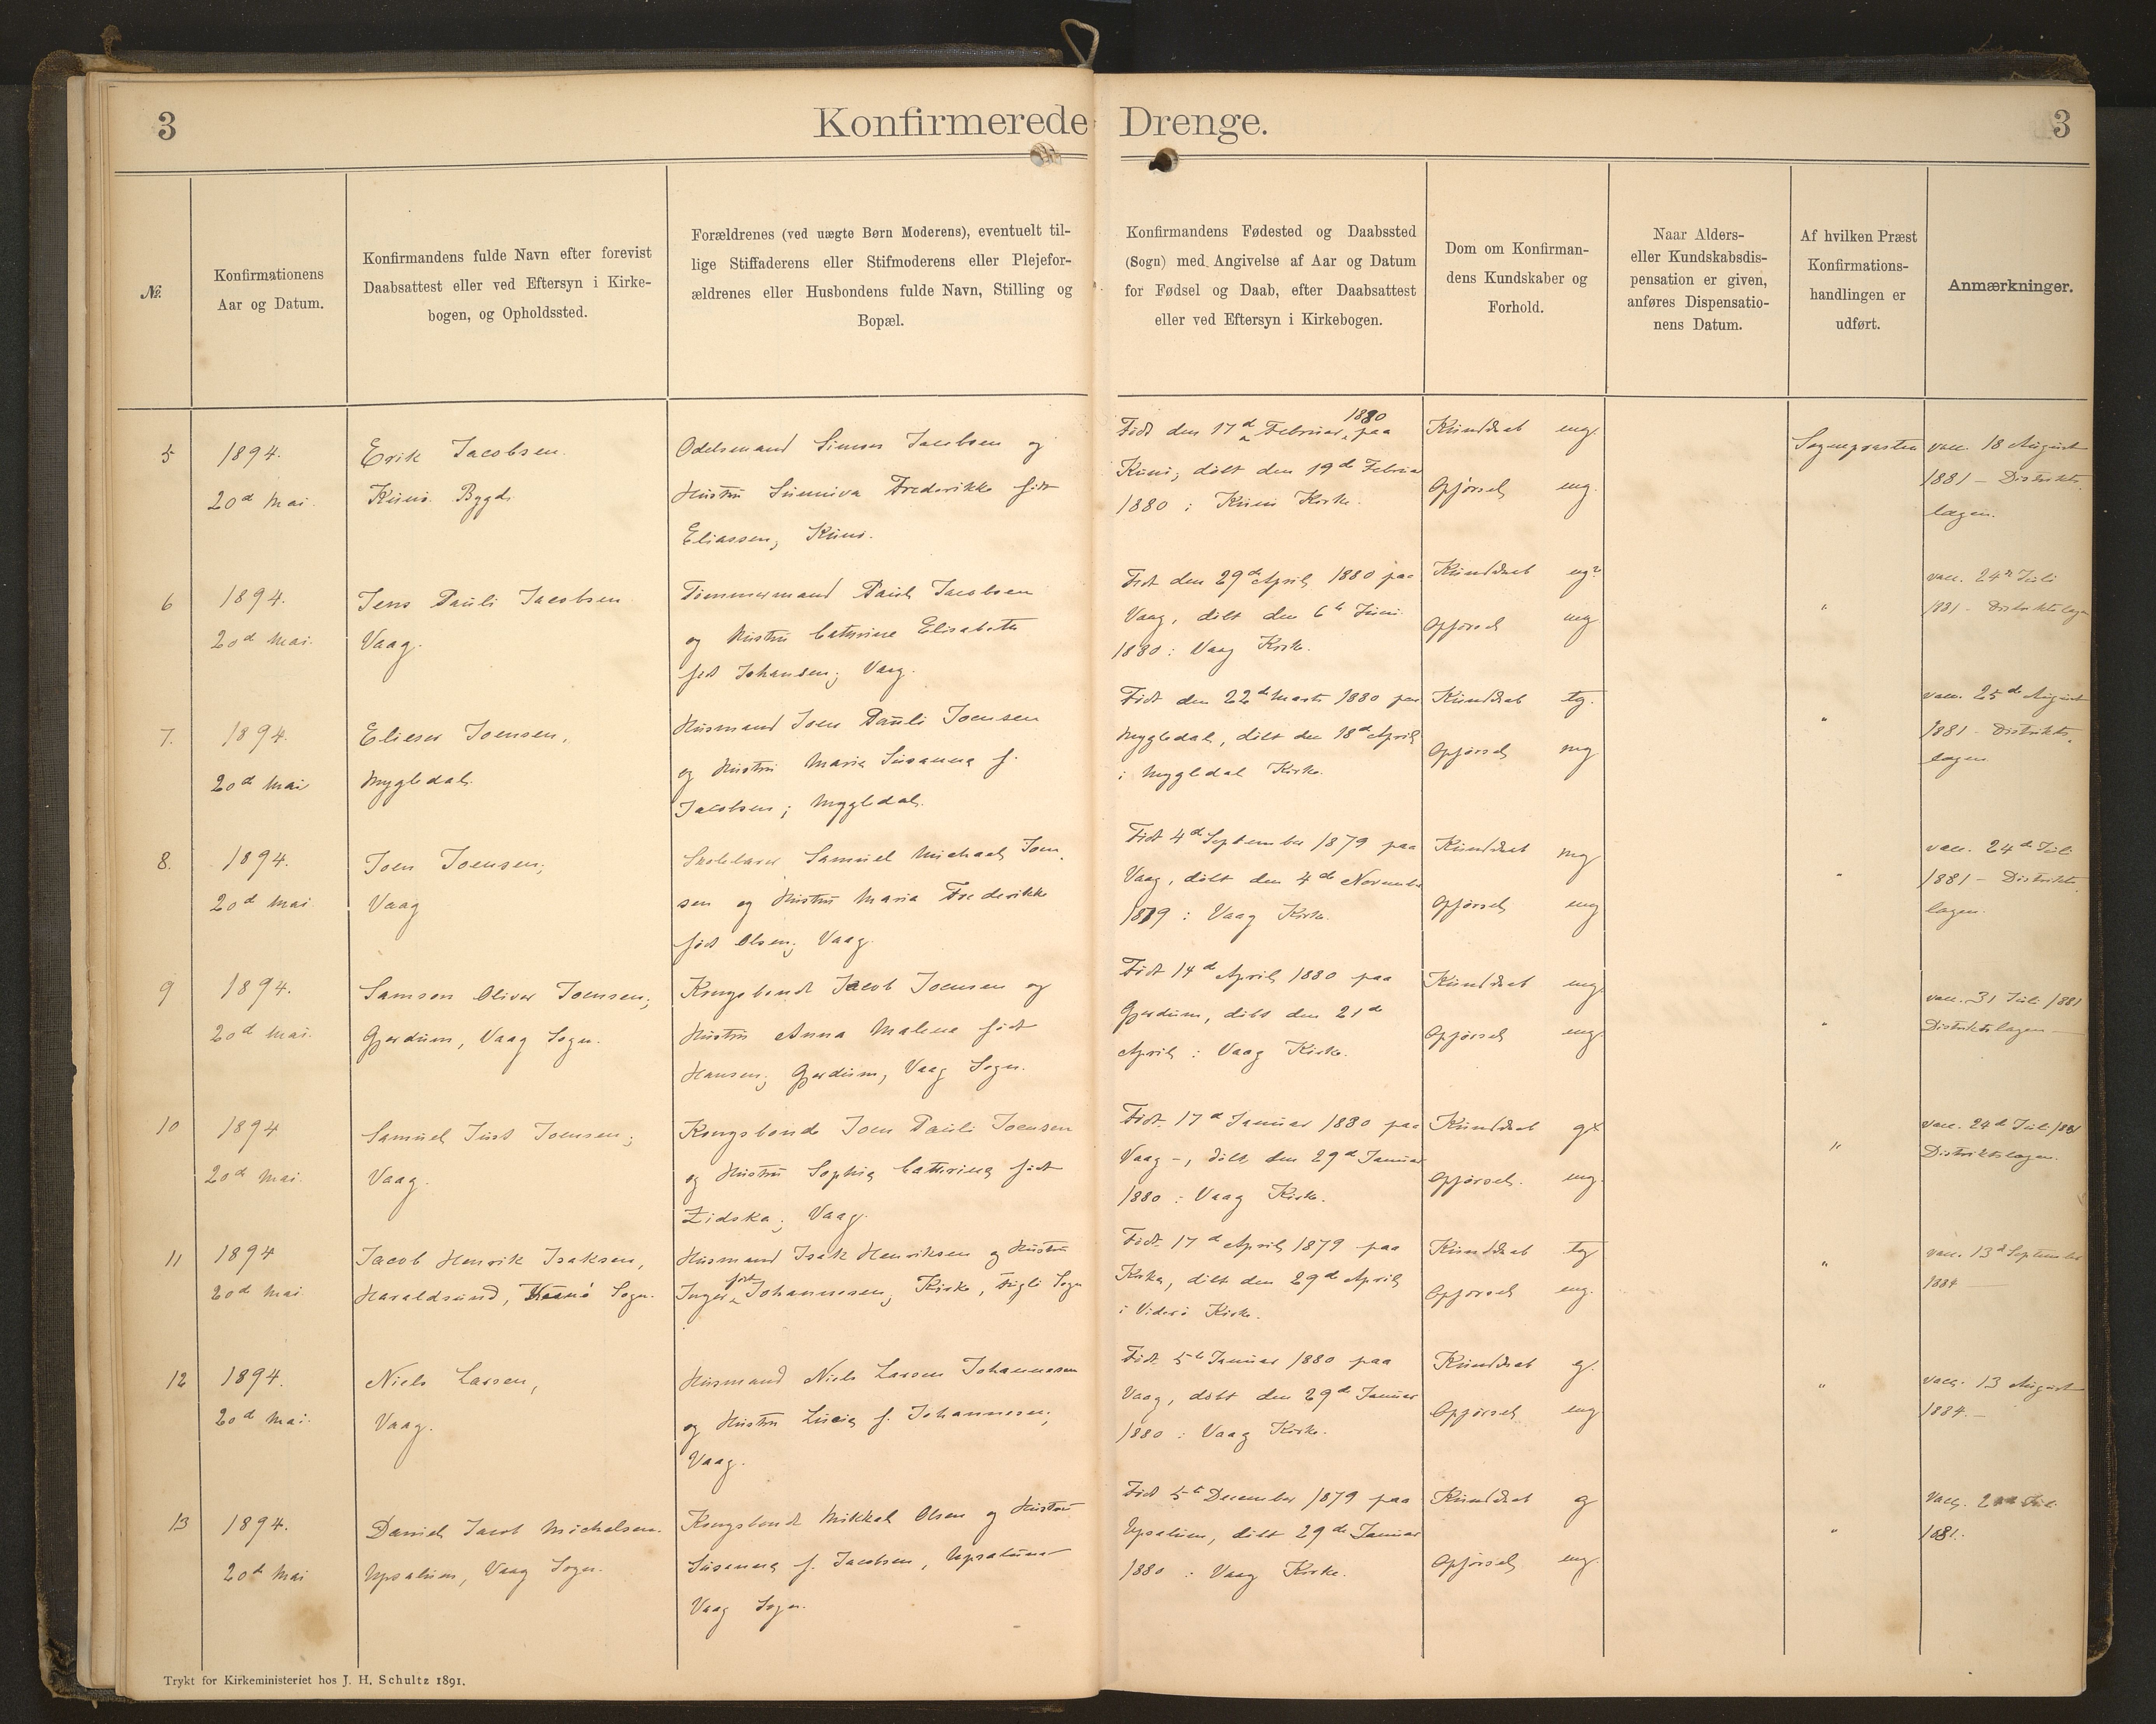 3
Konfirmerede Drenge.
3
№.
Konfirmationens
Aar og Datum.
Konfirmandens fulde Navn efter forevist
Daabsattest eller ved Eftersyn i Kirke-
bogen, og Opholdssted.
Forældrenes (ved uægte Børn Moderens), eventuelt til-
lige Stiffaderens eller Stifmoderens eller Plejefor-
ældrenes eller Husbondens fulde Navn, Stilling og
Bopæl.
Konfirmandens Fødested og Daabssted
(Sogn) med Angivelse af Aar og Datum
for Fødsel og Daab, efter Daabsattest
eller ved Eftersyn i Kirkebogen.
Dom om Konfirman-
dens Kundskaber og
Forhold.
Naar Alders-
eller Kundskabsdis-
pensation er given,
anføres Dispensatio-
nens Datum.
Af hvilken Præst
Konfirmations-
handlingen er
udført.
Anmærkninger.
5
1894.
20d Mai.
Erik Jacobsen.
Kunø Bygd.
Odelsmand Simon Jacobsen og
Hustru Sunniva Frederikke født
Eliassen, Kunø.
Født den 17d Februar 1880 paa
Kunø, døbt den 19d Februa
1880 i Kunø Kirke.
Kundskab mg.
Opførsel mg.
Sognepræsten
vacc. 18 August
1881 – Distrikts-
lægen.
6
1894.
20d Mai.
Jens Pauli Jacobsen
Vaag.
Tømmermand Pauli Jacobsen
og Hustru Cathrine Elisabeth
født Johansen; Vaag.
Født den 29de April 1880 paa
Vaag, døbt den 6te Juni
1880 i Vaag Kirke.
Kundskab
Opførsel mg
"
vacc. 24de Juli
1881 – Distriktslægen
7.
1894.
20d Mai
Elieser Joensen,
Mygledal.
Husmand Joen Pauli Joensen
og Hustru Maria Susanna f.
Jacobsen; Mygledal.
Født den 22de Marts 1880 paa
Mygledal, døbt den 18d April
i Mygledal Kirke.
Kundskab tg.
Opførsel mg
"
vacc. 25de August
1881 – Distrikts-
lægen
8.
1894.
20d Mai
Joen Joensen;
Vaag
Skolelærer Samuel Michael Joen-
sen og Hustru Maria Frederikke
født Olsen; Vaag.
Født 4d September 1879 paa
Vaag, døbt den 4de Novembr
1879 i Vaag Kirke.
Kundskab mg
Opførsel mg
"
vacc. 24de Juli
1881 – Distrikts-
lægen.
9
1894.
20d Mai.
Samson Oliver Joensen;
Gjerdum, Vaag Sogn.
Kongsbonde Jacob Joensen og
Hustru Anna Malena født
Hansen; Gjerdum, Vaag Sogn.
Født 14d April 1880 paa
Gjerdum, døbt den 21de
April i Vaag Kirke.
Kundskab mg.
Opførsel mg.
"
vacc. 31 Juli 1881
Distriktslægen –
10
1894
20d Mai.
Samuel Just Joensen;
Vaag.
Kongsbonde Joen Pauli Joensen
og Hustru Sophia Catharina født
Zidska; Vaag.
Født 17d Januar 1880 paa
Vaag –, døbt den 29d Januar
1880 i Vaag Kirke.
Kundskab
Opførsel mg.
"
vacc. 24de Juli 1881
Distriktslægen.
11
1894
20d Mai
Jacob Henrik Isaksen,
Haraldsund, Kunø Sogn.
Husmand Isak Henriksen og Hustru
Inger født Johannesen; Kirke, Fuglø Sogn
Født 17d April 1879 paa
Kirke, døbt den 29d April
i Viderø Kirke.
Kundskab tg
Opførsel mg.
"
vacc. 13d September
1884 –
12
1894.
20d Mai.
Niels Larsen,
Vaag.
Husmand Niels Larsen Johannesen
og Hustru Lucia f. Johannesen;
Vaag.
Født 5te Januar 1880 paa
Vaag, døbt den 29d Januar
1880 i Vaag Kirke.
Kundskab g.
Opførsel mg
"
vacc. 13 August
1884. –
13
1894.
20d Mai
Daniel Jacob Michelsen.
Upsalum, Vaag Sogn.
Kongsbonde Mikkel Olsen og Hustru
Susanna f. Jacobsen, Upsalum
Vaag Sogn.
Født 5te December 1879 paa
Upsalum, døbt 29de Januar
1880 i Vaag Kirke.
Kundskab g
Opførsel mg.
"
vacc. Juli
1881.
Trykt for Kirkeministeriet hos J. H. Schultz 1891.